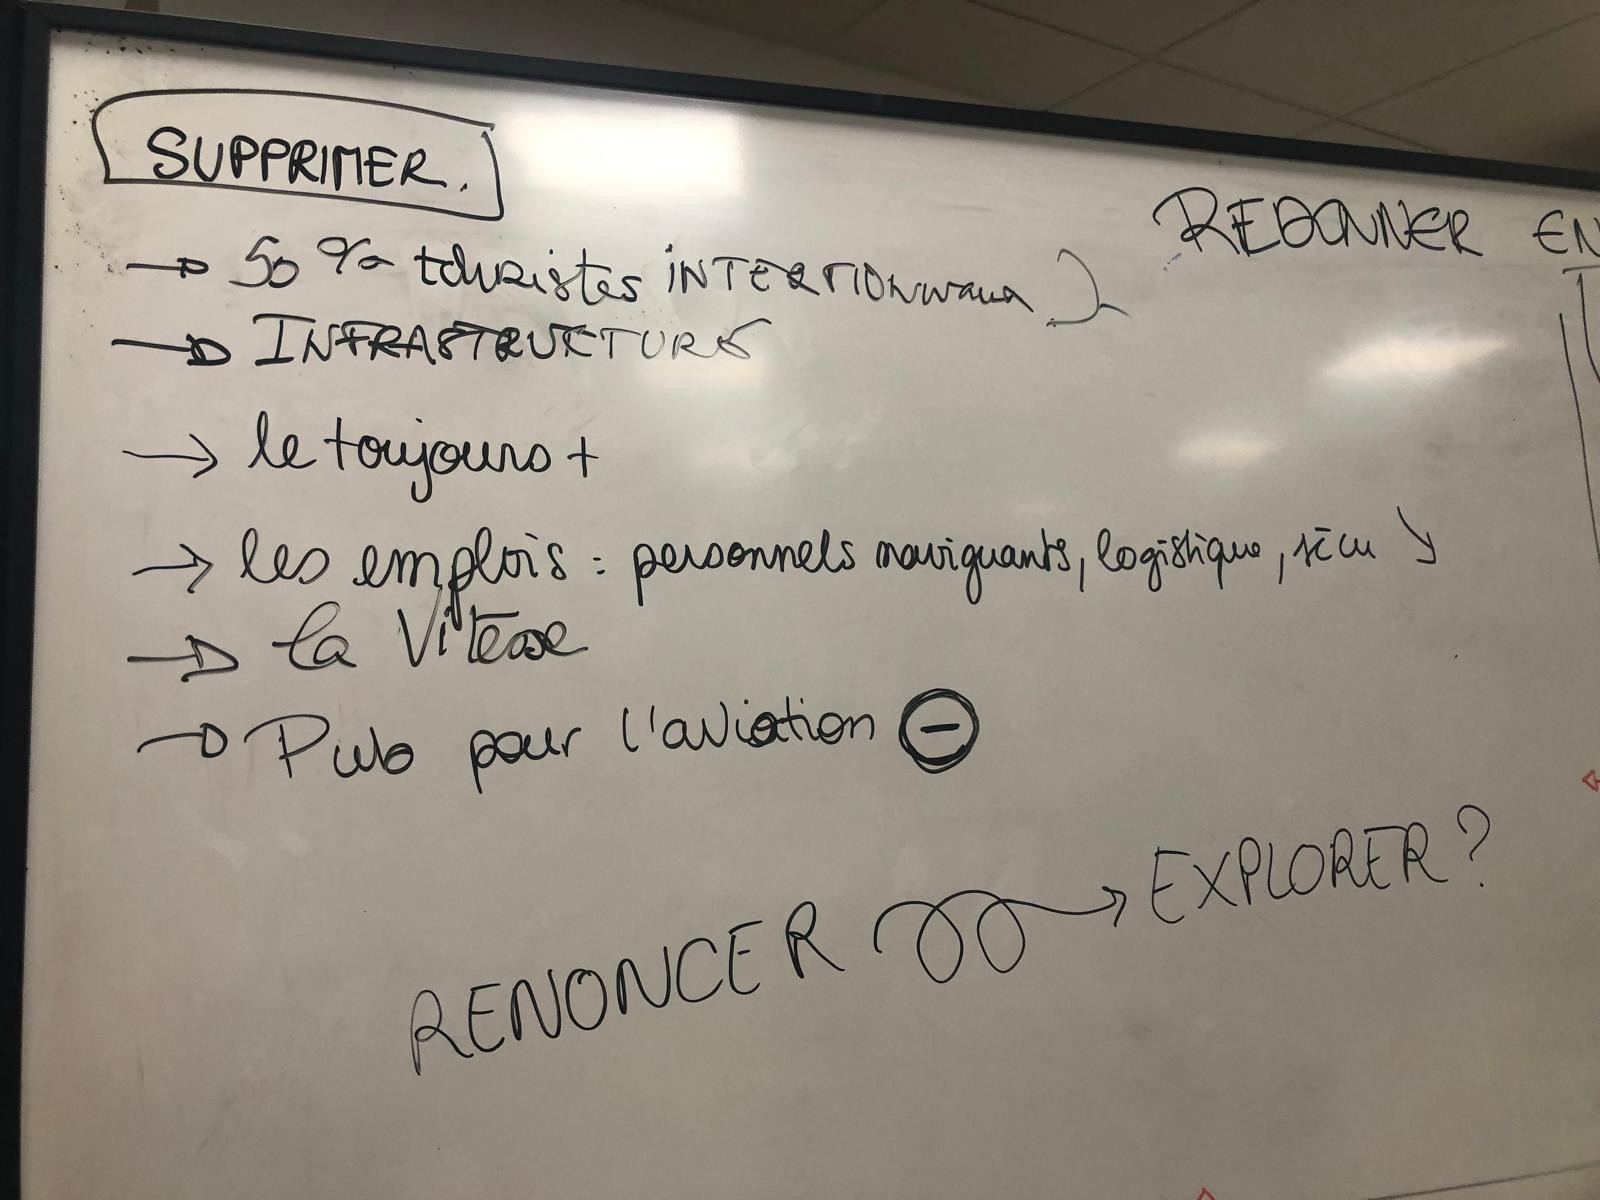 SUPPRIMER.
REDONNER EN
→ 50 % touristes INTERTIONNAUX
→ INFRASTRUCTURES
→ le toujours +
→ les emplois : personnels naviguants, logistique, sécu ↘
→ la Vitesse
→ Pub pour l'aviation ⊖
RENONCER → EXPLORER ?